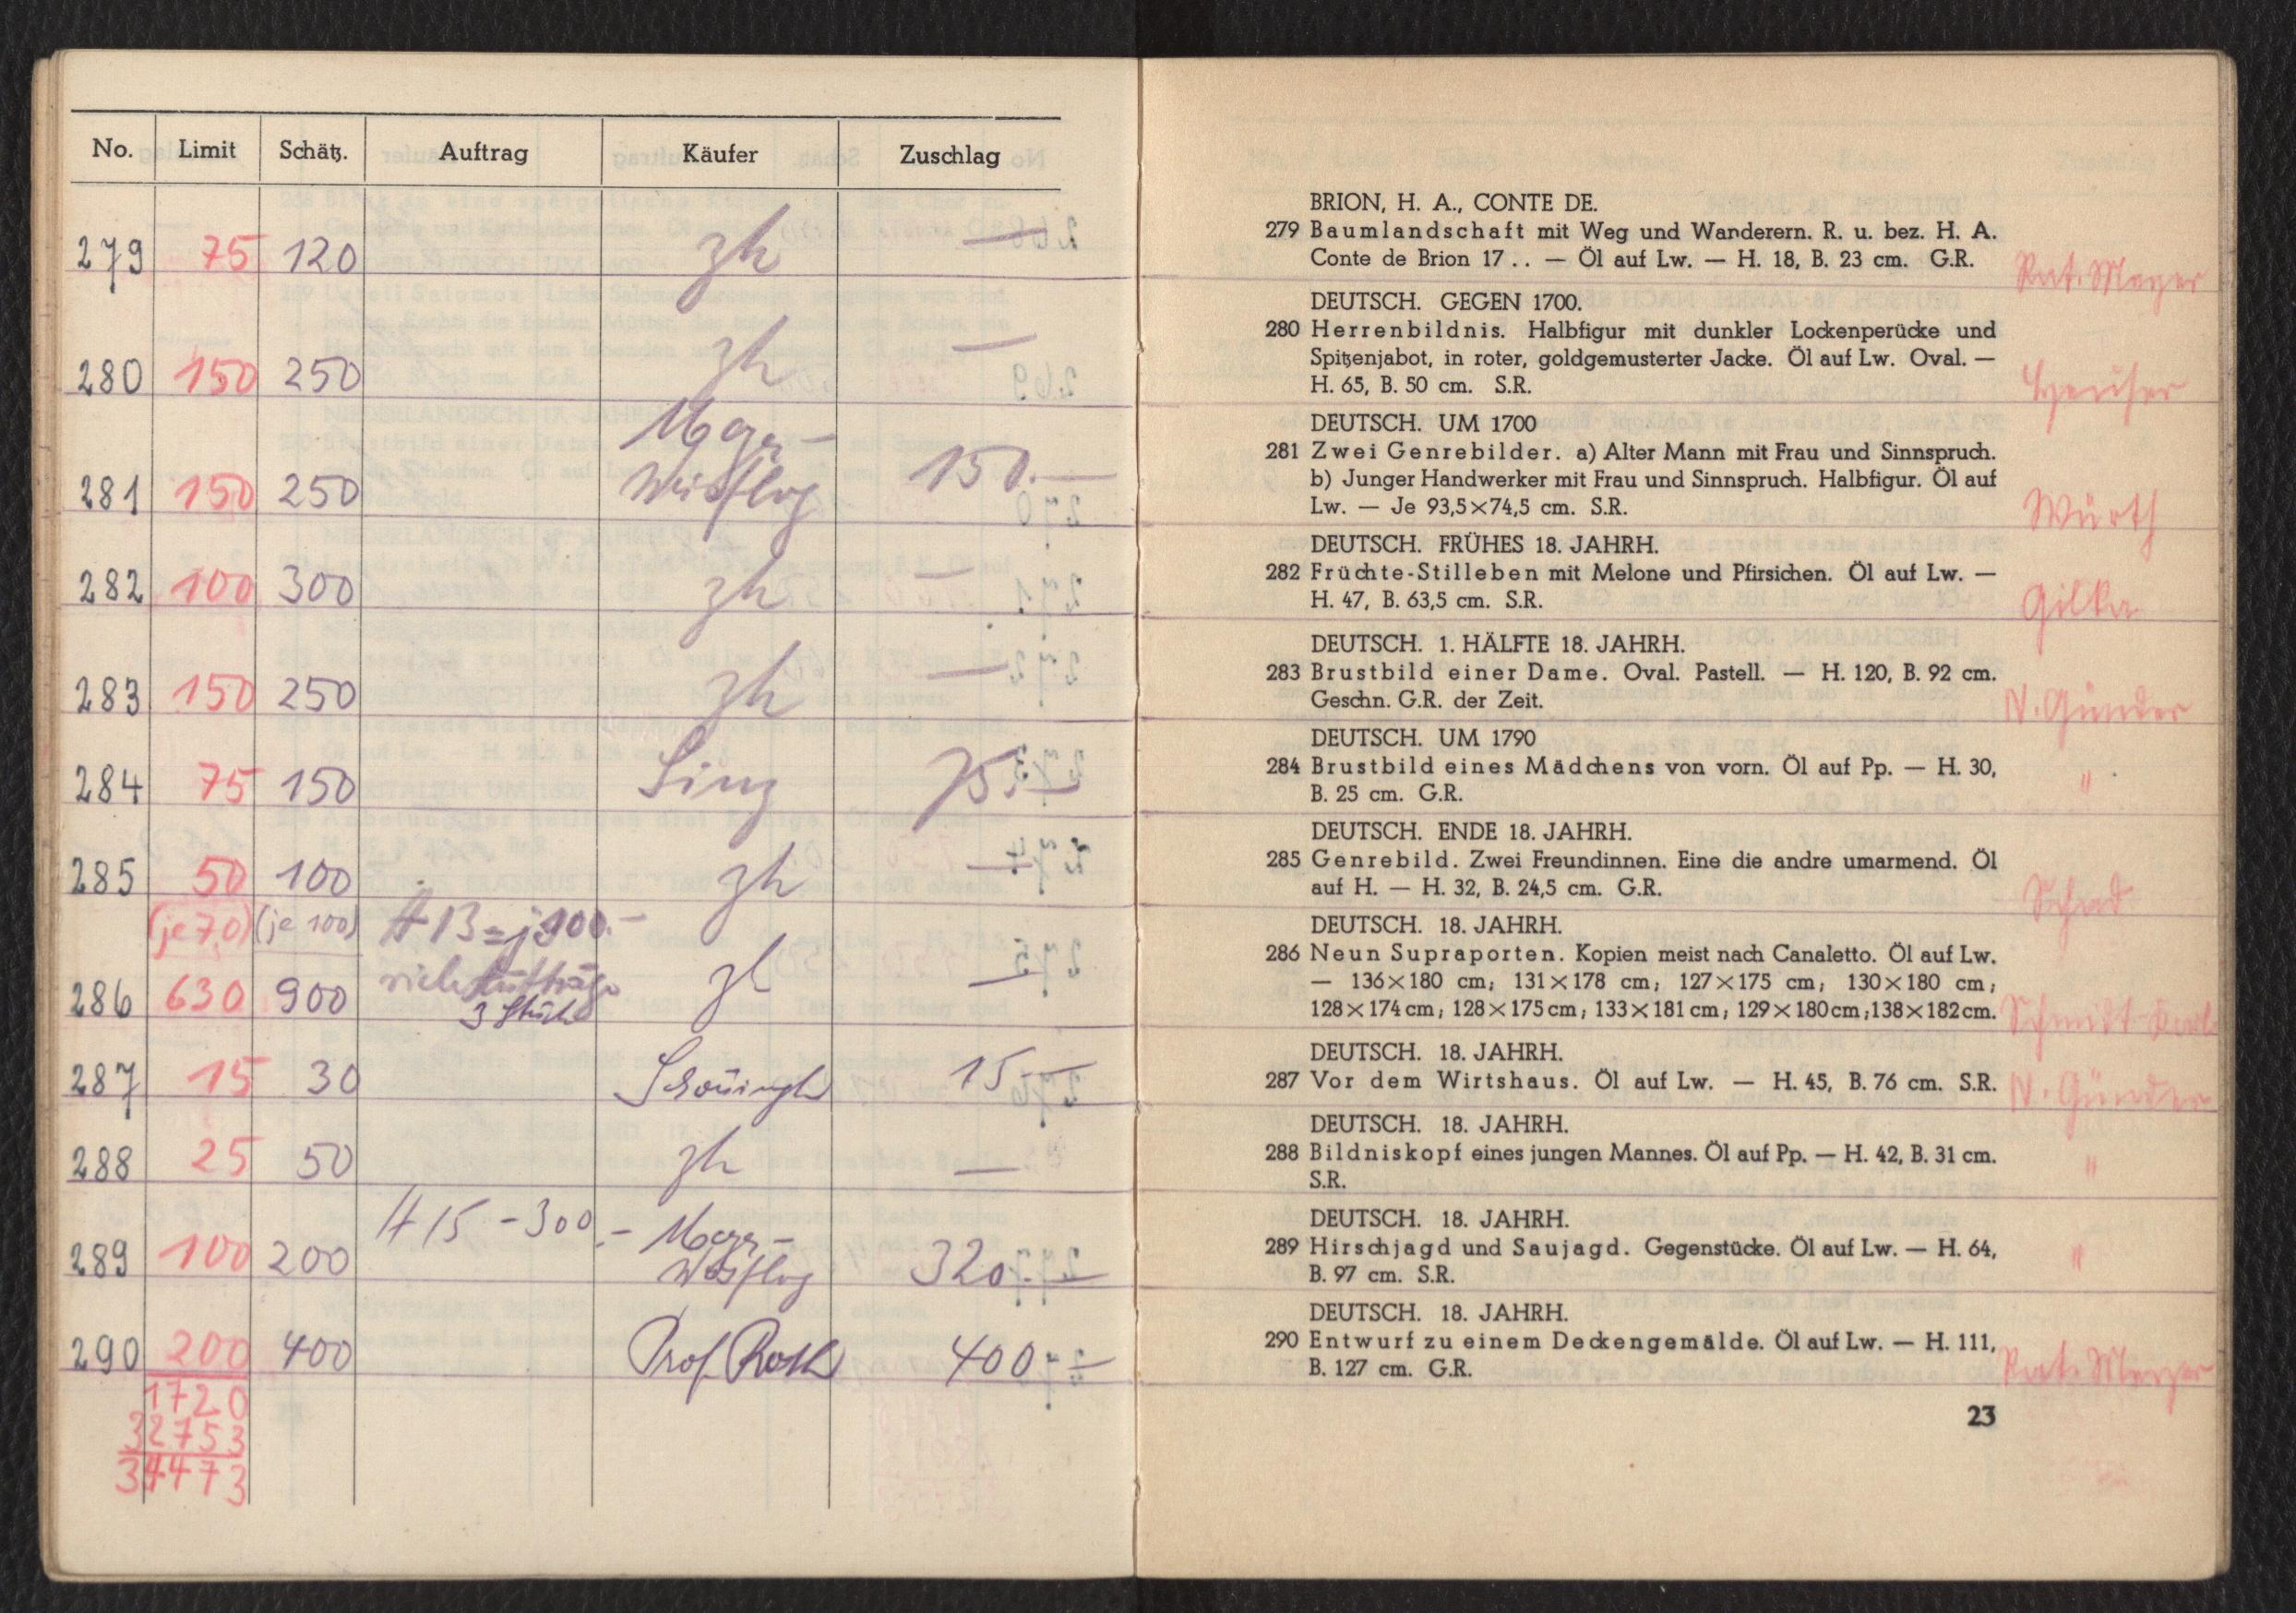 No. Limit Schätz. Auftrag Käufer Zuschlag
279 75 120 zh —
280 150 250 zh —
281 150 250 Meyer- Weisflog 150.—
282 100 300 zh —
283 150 250 zh —
284 75 150 75.—
285 50 100 zh —
(je 70) (je 100)
286 630 900 viele Aufträge zh —
3 Stück
287 15 30 15.—
288 25 50 zh —
289 100 200 A 15 - 300.- 320.—
290 200 400 Prof. Roth 400.—
1720
32753
34473
BRION, H. A., CONTE DE.
279 Baumlandschaft mit Weg und Wanderern. R. u. bez. H. A.
Conte de Brion 17 . . — Öl auf Lw. — H. 18, B. 23 cm. G.R.
DEUTSCH. GEGEN 1700.
280 Herrenbildnis. Halbfigur mit dunkler Lockenperücke und
Spitzenjabot, in roter, goldgemusterter Jacke. Öl auf Lw. Oval. —
H. 65, B. 50 cm. S.R.
DEUTSCH. UM 1700
281 Zwei Genrebilder. a) Alter Mann mit Frau und Sinnspruch.
b) Junger Handwerker mit Frau und Sinnspruch. Halbfigur. Öl auf
Lw. — Je 93,5×74,5 cm. S.R.
Würth
DEUTSCH. FRÜHES 18. JAHRH.
282 Früchte-Stilleben mit Melone und Pfirsichen. Öl auf Lw. —
H. 47, B. 63,5 cm. S.R.
Gilka
DEUTSCH. 1. HÄLFTE 18. JAHRH.
283 Brustbild einer Dame. Oval. Pastell. — H. 120, B. 92 cm.
Geschn. G.R. der Zeit.
N. Günder
DEUTSCH. UM 1790
284 Brustbild eines Mädchens von vorn. Öl auf Pp. — H. 30,
B. 25 cm. G.R.
"
DEUTSCH. ENDE 18. JAHRH.
285 Genrebild. Zwei Freundinnen. Eine die andre umarmend. Öl
auf H. — H. 32, B. 24,5 cm. G.R.
Schad
DEUTSCH. 18. JAHRH.
286 Neun Supraporten. Kopien meist nach Canaletto. Öl auf Lw.
— 136×180 cm; 131×178 cm; 127×175 cm; 130×180 cm;
128×174 cm; 128×175 cm; 133×181 cm; 129×180 cm; 138×182 cm.
DEUTSCH. 18. JAHRH.
287 Vor dem Wirtshaus. Öl auf Lw. — H. 45, B. 76 cm. S.R.
N. Günder
DEUTSCH. 18. JAHRH.
288 Bildniskopf eines jungen Mannes. Öl auf Pp. — H. 42, B. 31 cm.
S.R.
"
DEUTSCH. 18. JAHRH.
289 Hirschjagd und Saujagd. Gegenstücke. Öl auf Lw. — H. 64,
B. 97 cm. S.R.
"
DEUTSCH. 18. JAHRH.
290 Entwurf zu einem Deckengemälde. Öl auf Lw. — H. 111,
B. 127 cm. G.R.
23